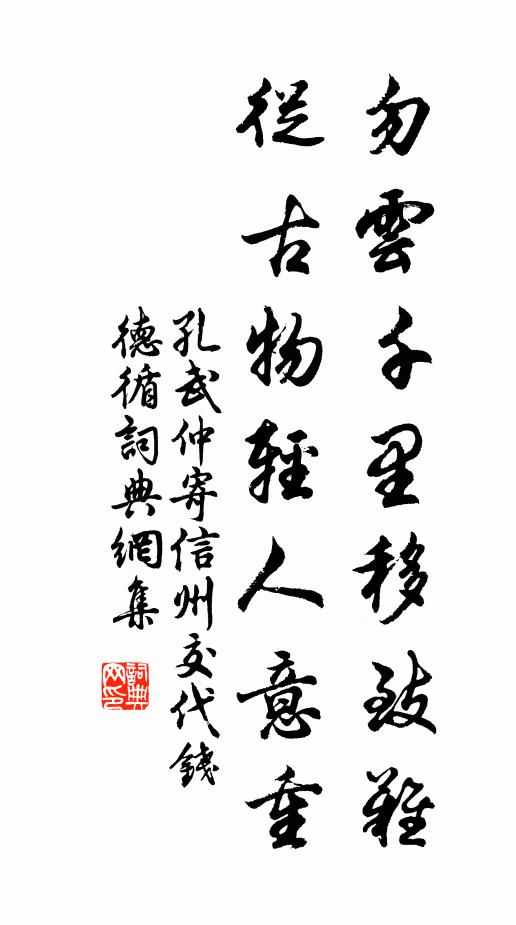 勿雲千里移致難
從古物輕人意重
孔武仲寄信州交代錢
德循詞典網集
詞典网印